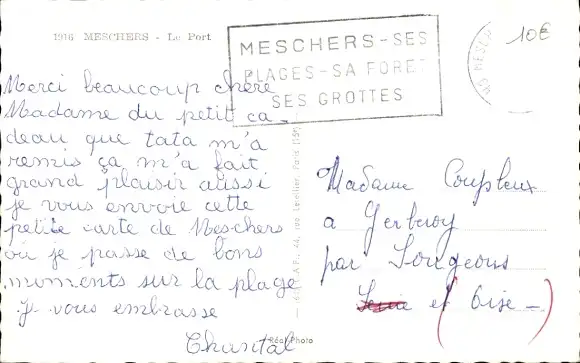 1916 MESCHERS - Le Port
MESCHERS-SES
PLAGES-SA FORET
SES GROTTES
10€
Merci beaucoup chère
Madame du petit ca_
deau que tata m'a
remis ça m'a fait
grand plaisir aussi
je vous envoie cette
petite carte de Meschers
où je passe de bons
moments sur la plage
Je vous embrasse
Chantal
Réal-Photo
Madame Coupleux
a Gerberoy
par Songeons
et (Oise-)